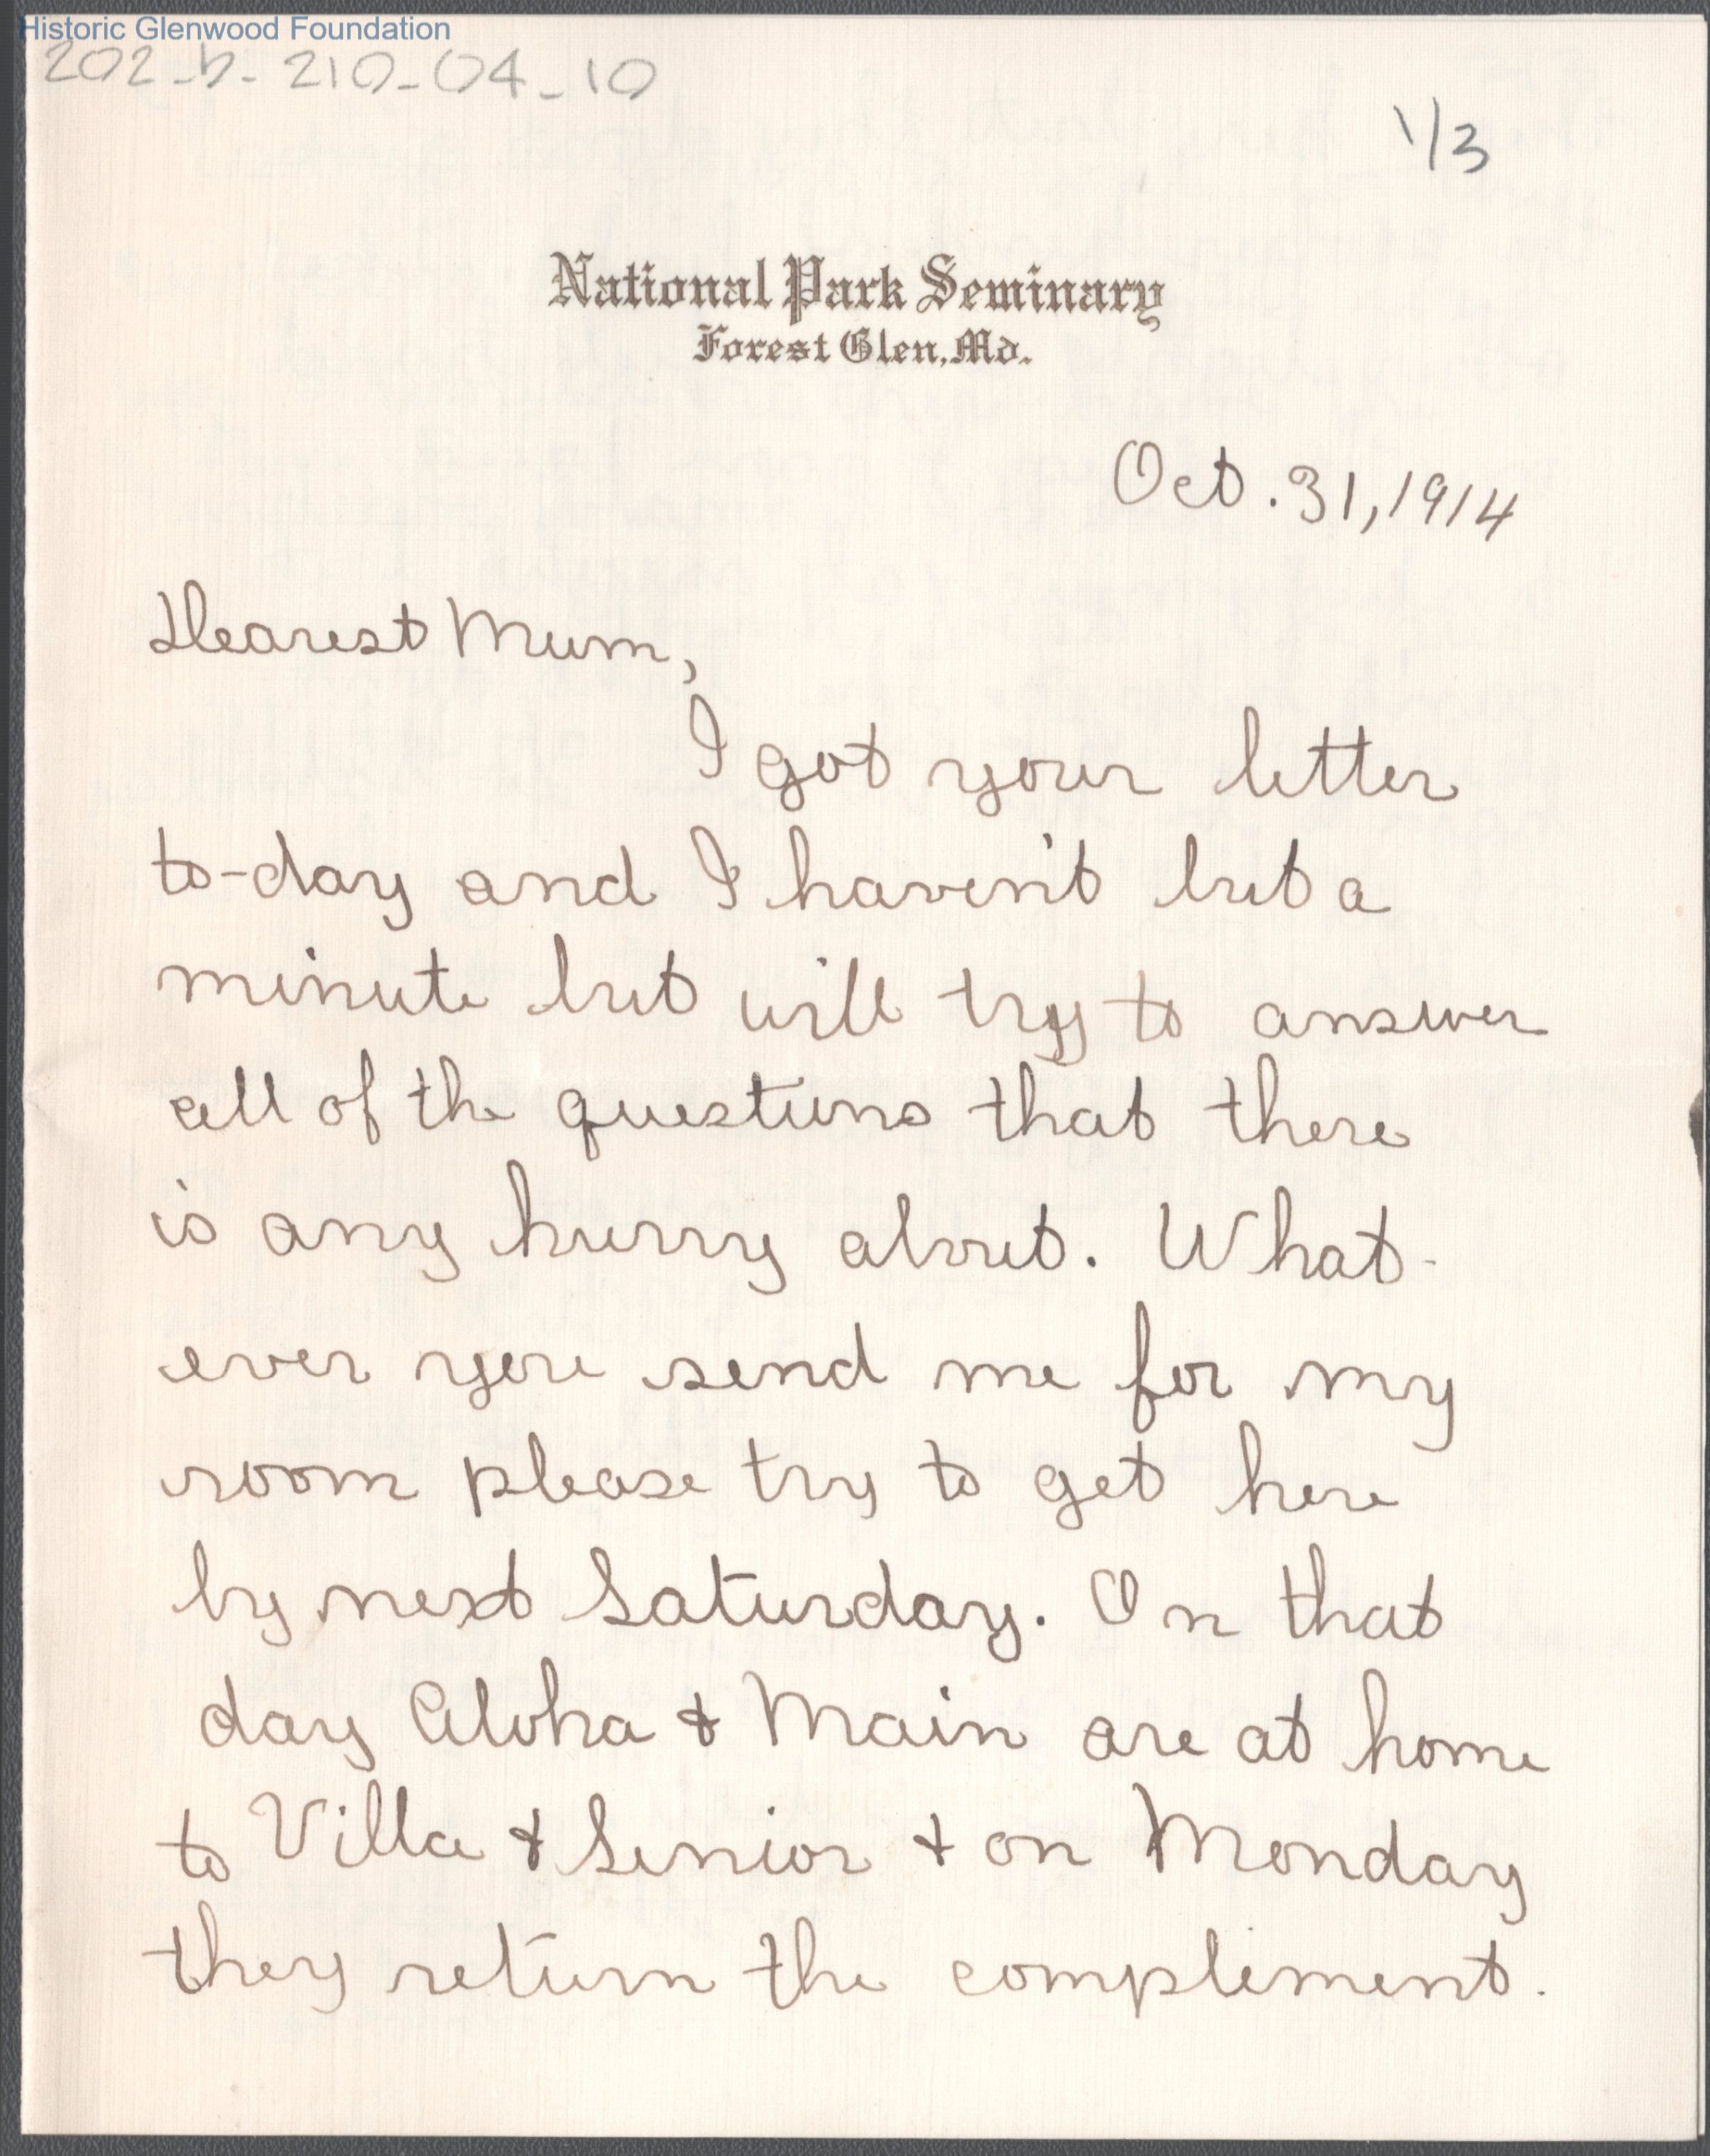 Historic Glenwood Foundation
202-b-210-04-10
1/3
National Park Seminary
Forest Glen, Md.
Oct. 31, 1914
Dearest Mum,
I got your letter
to-day and I haven't but a
minute but will try to answer
all of the questions that there
is any hurry about. What-
ever you send me for my
room please try to get here
by next Saturday. On that
day Aloha & Main are at home
to Villa & Senior & on Monday
they return the complement.